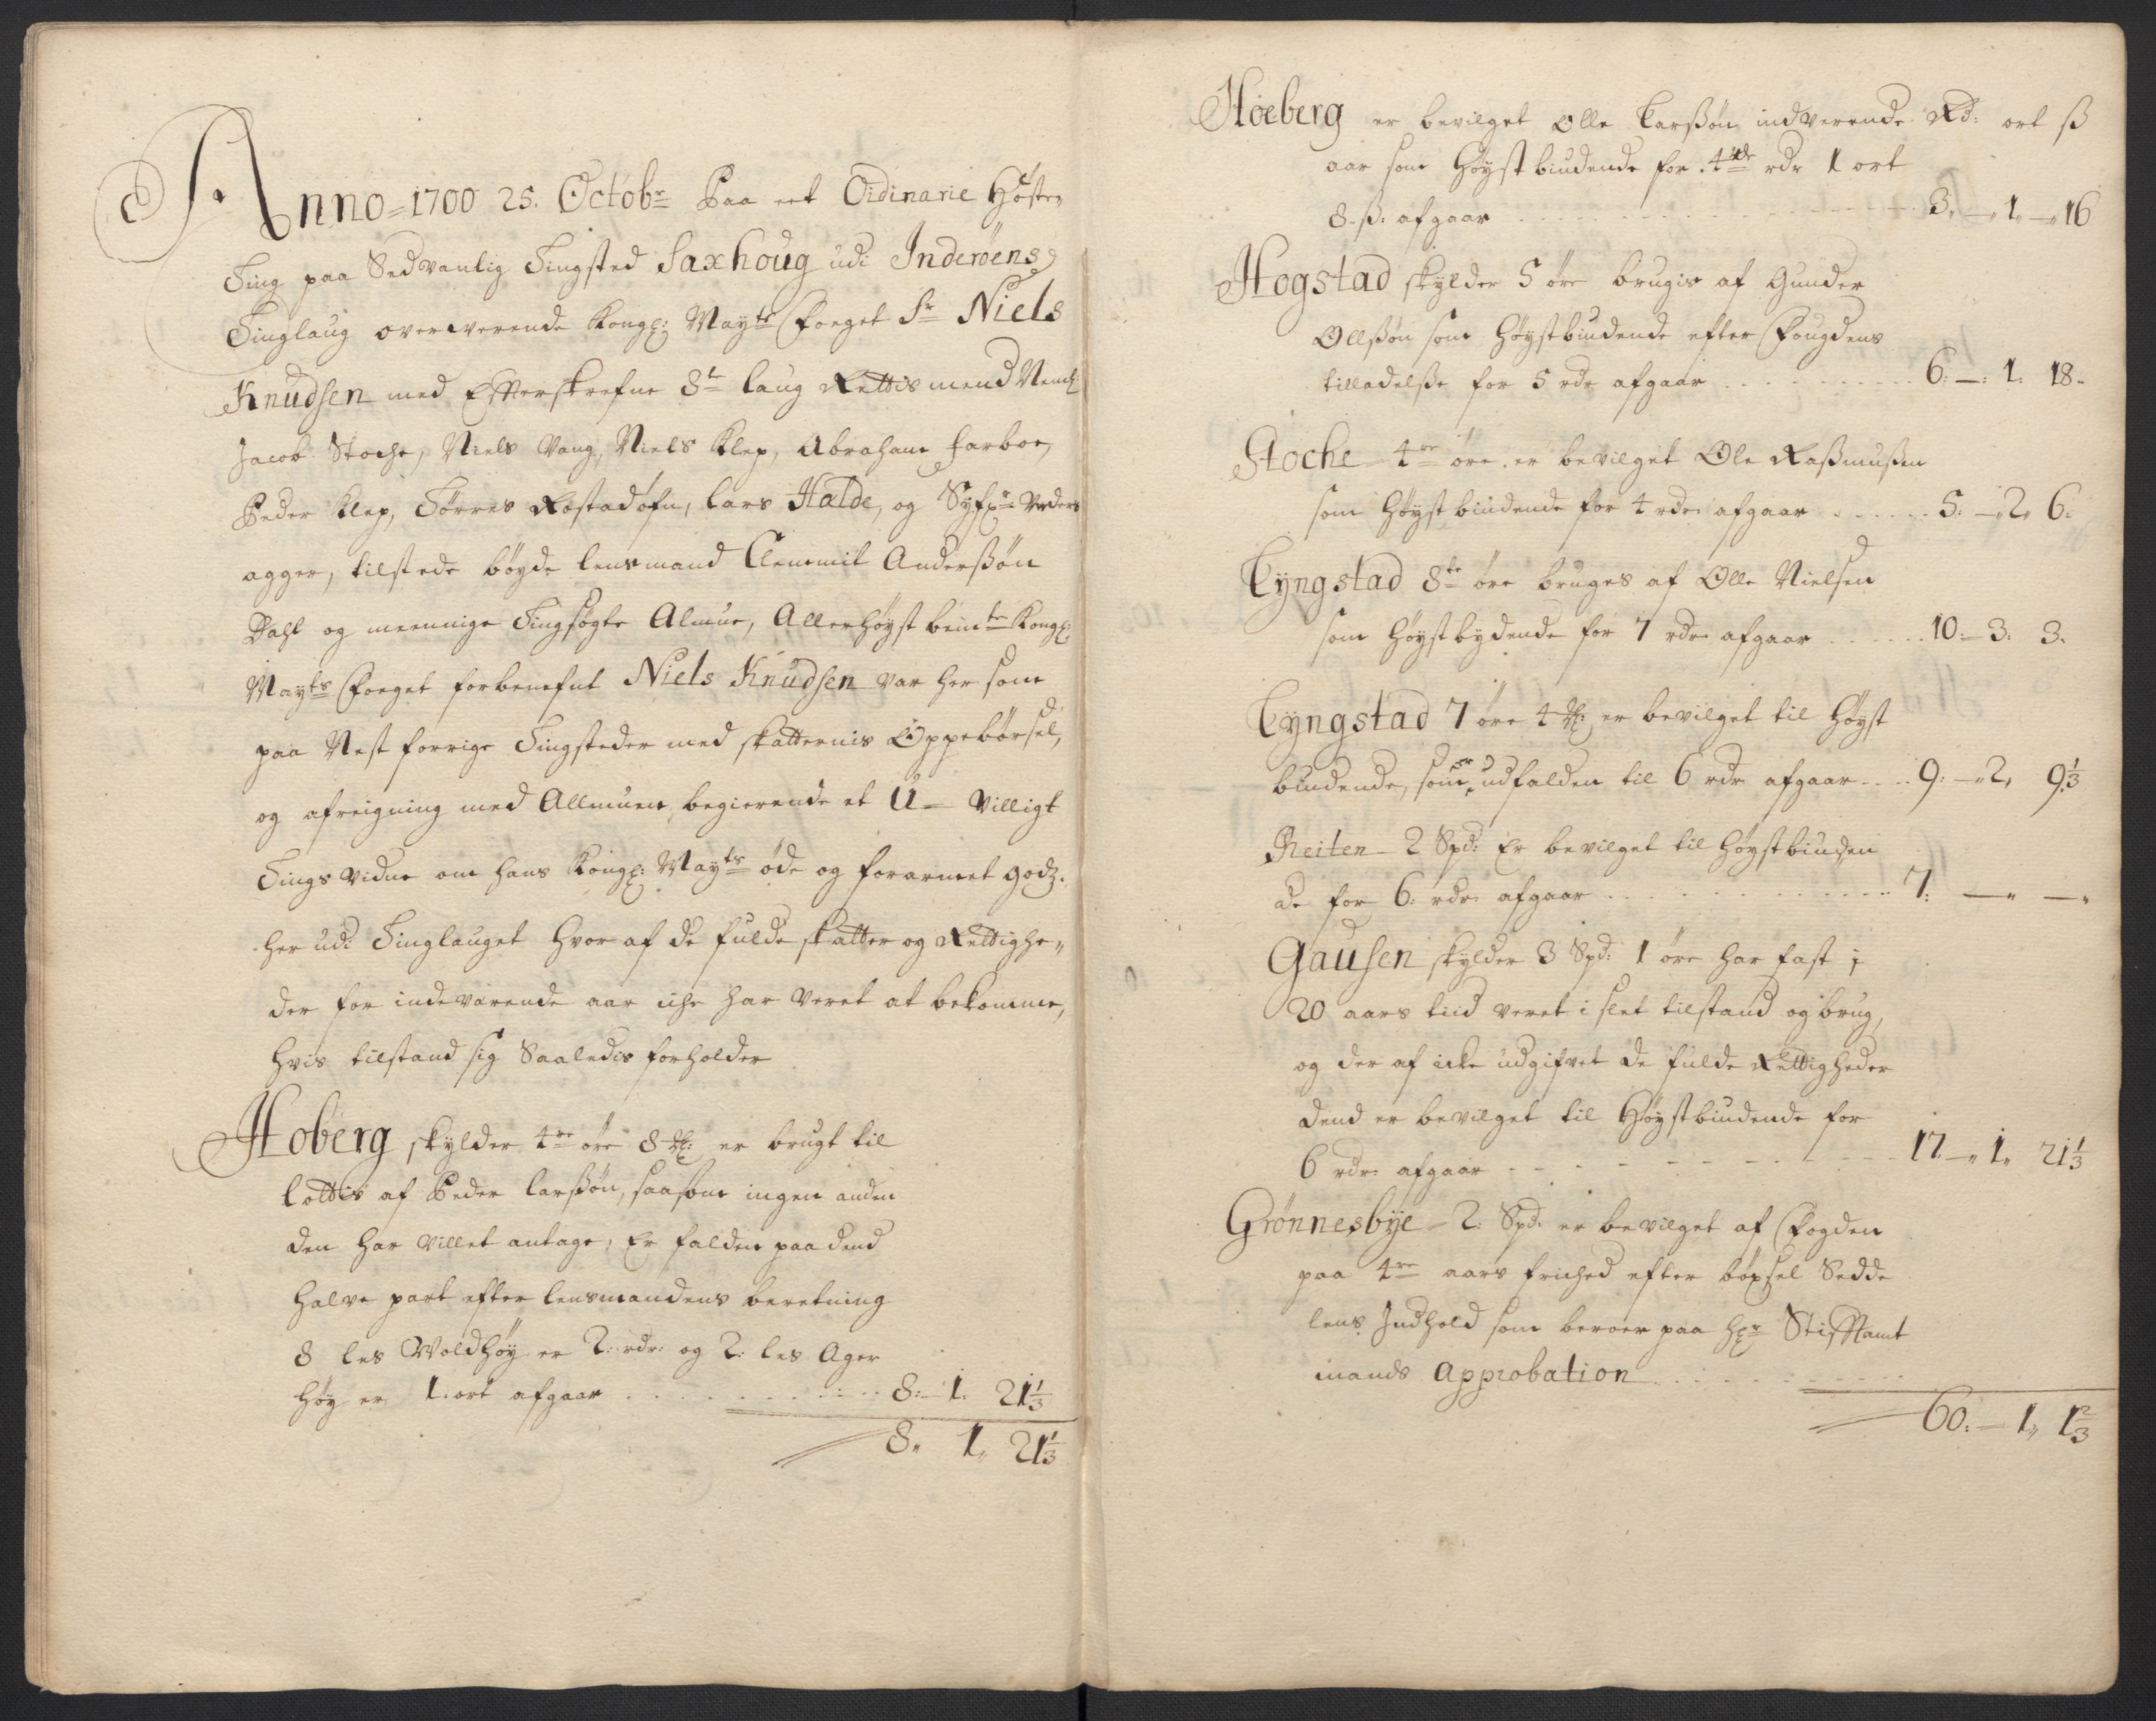 Anno=1700 25. Octobr Paa eet Ordinarie Høste„
Ting paa Sedvanlig Tingsted Saxhoug udi Inderøens
Tinglaug overwerende Kongl: Mayts Foeget Sr Niels
Knudsen med Efterskrefne 8te laug Rettis mend Neml:
Jacob Stoche, Niels Vang, Niels Klep, Abraham Farboe,
Peder Klep, Tørres Rostadøfn, Lars Halde, og
agger, tilstede bøyde lensmand Clemmit Anderssøn
Dahl og meennige Tingsøgte Almue, Allerhøyst bemte Kongl:
Mayts Foeget forbenefnt Niels Knudsen var her som
paa Nest forrige Tingsteder med skatternis Oppebørsel,
og afreigning med Allmuen, begierende et U- Villigt
Tings Vidne om hans Kongl: Mayts øde og forarmet godz.
her udi Tinglauget Hvor af de fulde skatter og Rettighe„
der for indeværende aar iche har veret at bekomme,
hvis tilstand sig Saaledis forholder
Hoberg skylder 4re øre 8 ₰: er brugt til
lottis af Peder Larssøn, saasom ingen anden
den har villet antage, Er falden paa dend
halve part efter lensmandens beretning
8 les Woldhøy er 2: rdr: og 2: les Ager
høy er 1: ort afgaar . . . . . . . 8:- 1. 21⅓
8„ 1„ 21⅓
Hoeberg er bevilget Olle Larssøn indverende Rd: ort ß
aar som Høystbiudende for 4de rdr 1 ort
8 ß: afgaar . . . . . . . 3. -„ 1„ -„ 16
Hogstad skylder 5 øre brugis af Gunder
Ollssøn som Høystbiudende efter Fougdens
tilladelsse for 5 rdr afgaar . . . . . . . 6: -: 1: 18-
Stoche 4re øre er bevilget Ole Rassmussen
som Høystbiudende for 4 rdr afgaar . . . . . 5: -„ 2„ 6:
Lyngstad 8te øre bruges af Olle Nielsen
som Høystbydende for 7 rdr afgaar . . . . . 10:- 3: 3.
Lyngstad 7 øre 4 ₰: er bevilget til Høyst
biudende, som er udfalden til 6 rdr afgaar . . . 9: -„ 2„ 9⅓
Reiten 2 Spd: Er bevilget til Høystbiuden
de for 6: rdr: afgaar . . . . . . . 7: -„ -„
Gausen skylder 3 Spd: 1 øre har fast i
20 aars tiid veret i slet tilstand og brug,
og der af icke udgifvet de fulde Rettigheder
dend er bevilget til Høystbiudende for
6 rdr: afgaar - - - - - - - 17. -„ 1„ 21⅓
Grønnesbye - 2: Spd. er bevilget af Fogden
paa 4re aars frihed efter bøxsel Sedde
lens Indhold som beroer paa Hr Stifftamt
mands Approbation . . . . . . .
60: - 1„ 1⅔